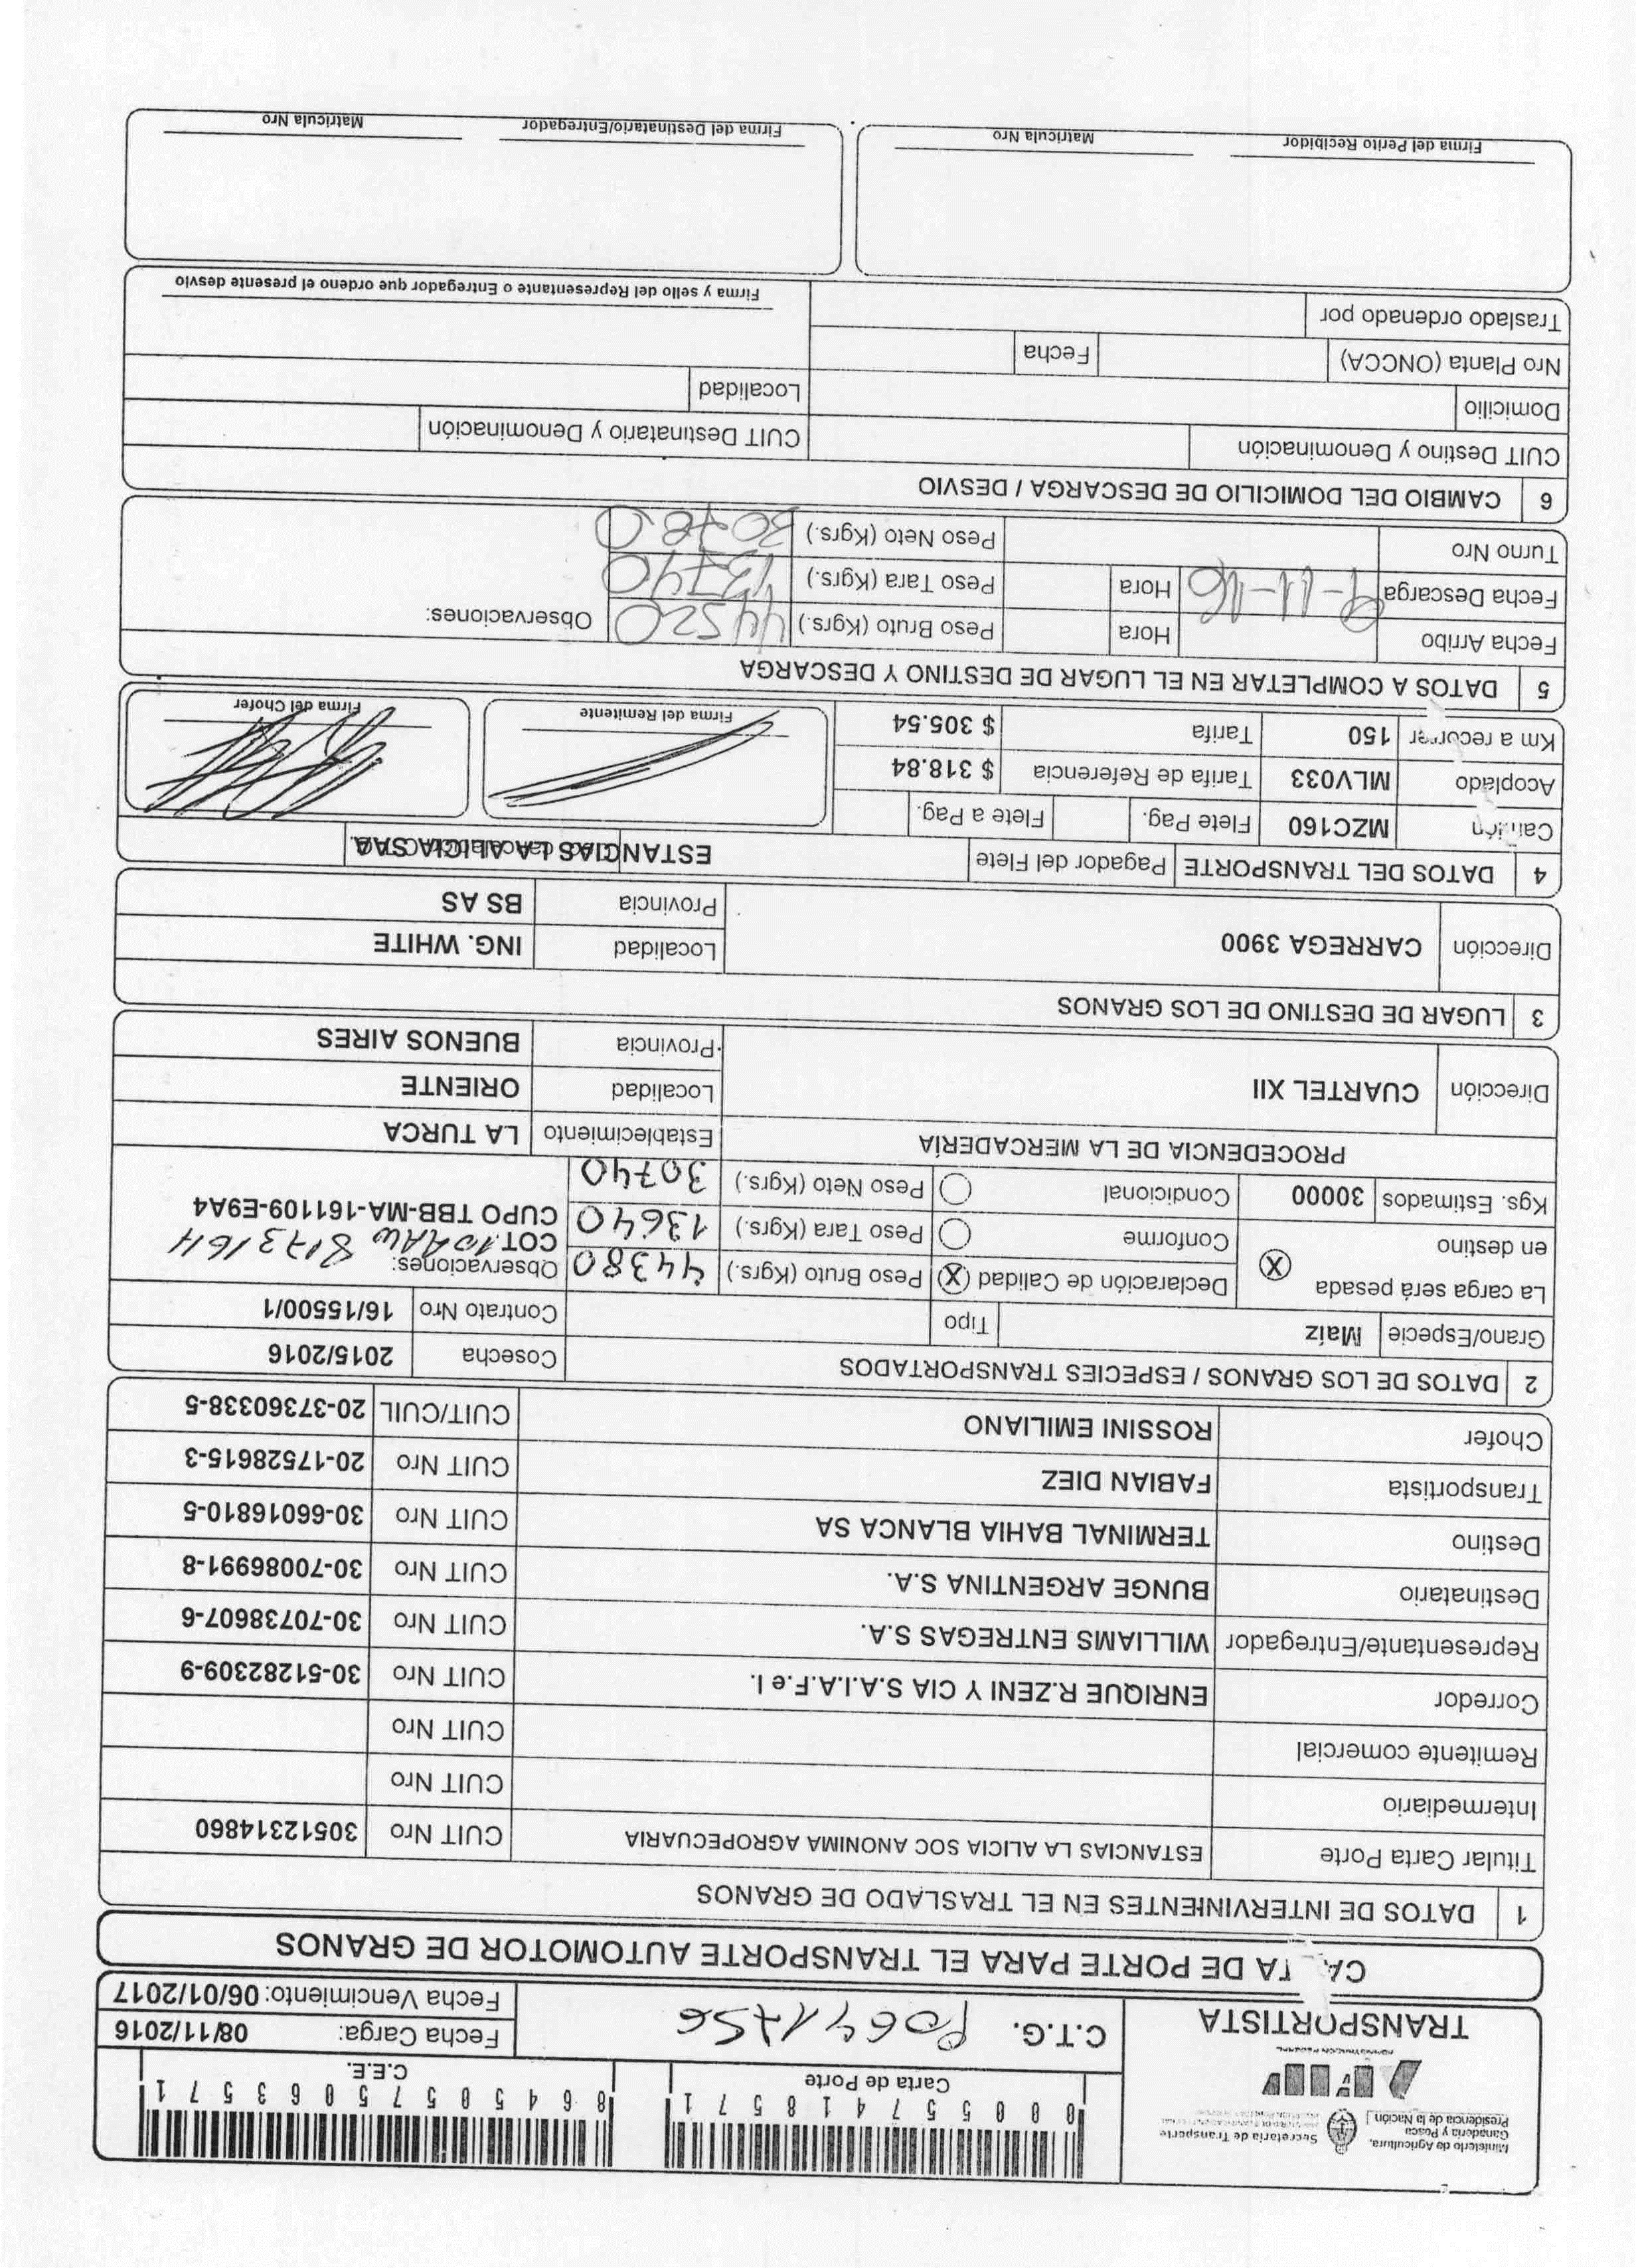 Ministerio de Agricultura,
Ganadería y Pesca
Presidencia de la Nación
Secretaría de Transporte
TRANSPORTISTA
000557418571
Carta de Porte
86450575063571
C.E.E.
C.T.G.
Fecha Carga: 08/11/2016
Fecha Vencimiento: 06/01/2017
CA TA DE PORTE PARA EL TRANSPORTE AUTOMOTOR DE GRANOS
1 DATOS DE INTERVINIENTES EN EL TRASLADO DE GRANOS
Titular Carta Porte ESTANCIAS LA ALICIA SOC ANONIMA AGROPECUARIA CUIT Nro 30512314860
Intermediario CUIT Nro
Remitente comercial CUIT Nro
Corredor ENRIQUE R.ZENI Y CIA S.A.I.A.F.e I. CUIT Nro 30-51282309-9
Representante/Entregador WILLIAMS ENTREGAS S.A. CUIT Nro 30-70738607-6
Destinatario BUNGE ARGENTINA S.A. CUIT Nro 30-70086991-8
Destino TERMINAL BAHIA BLANCA SA CUIT Nro 30-66016810-5
Transportista FABIAN DIEZ CUIT Nro 20-17528615-3
Chofer ROSSINI EMILIANO CUIT/CUIL 20-37360338-5
2 DATOS DE LOS GRANOS / ESPECIES TRANSPORTADOS Cosecha 2015/2016
Grano/Especie Maíz Tipo Contrato Nro 16/15500/1
La carga será pesada en destino X Declaración de Calidad X Peso Bruto (Kgrs.) 44380 Observaciones:
Conforme Peso Tara (Kgrs.) 13640 COT.
Kgs. Estimados 30000 Condicional Peso Neto (Kgrs.) 30740 CUPO TBB-MA-161109-E9A4
PROCEDENCIA DE LA MERCADERÍA Establecimiento LA TURCA
Dirección CUARTEL XII Localidad ORIENTE
Provincia BUENOS AIRES
3 LUGAR DE DESTINO DE LOS GRANOS
Dirección CARREGA 3900 Localidad ING. WHITE
Provincia BS AS
4 DATOS DEL TRANSPORTE Pagador del Flete ESTANCIAS LA ALICIA SAA
Camión MZC160 Flete Pag. Flete a Pag.
Acoplado MLV033 Tarifa de Referencia $ 318.84
Km a recorrer 150 Tarifa $ 305.54
Firma del Remitente
Firma del Chofer
5 DATOS A COMPLETAR EN EL LUGAR DE DESTINO Y DESCARGA
Fecha Arribo Hora Peso Bruto (Kgrs.) 44520 Observaciones:
Fecha Descarga 9-11-16 Hora Peso Tara (Kgrs.) 13740
Turno Nro Peso Neto (Kgrs.) 30780
6 CAMBIO DEL DOMICILIO DE DESCARGA / DESVIO
CUIT Destino y Denominación CUIT Destinatario y Denominación
Domicilio Localidad
Nro Planta (ONCCA) Fecha
Traslado ordenado por
Firma y sello del Representante o Entregador que ordeno el presente desvio
Firma del Perito Recibidor Matricula Nro
Firma del Destinatario/Entregador Matricula Nro